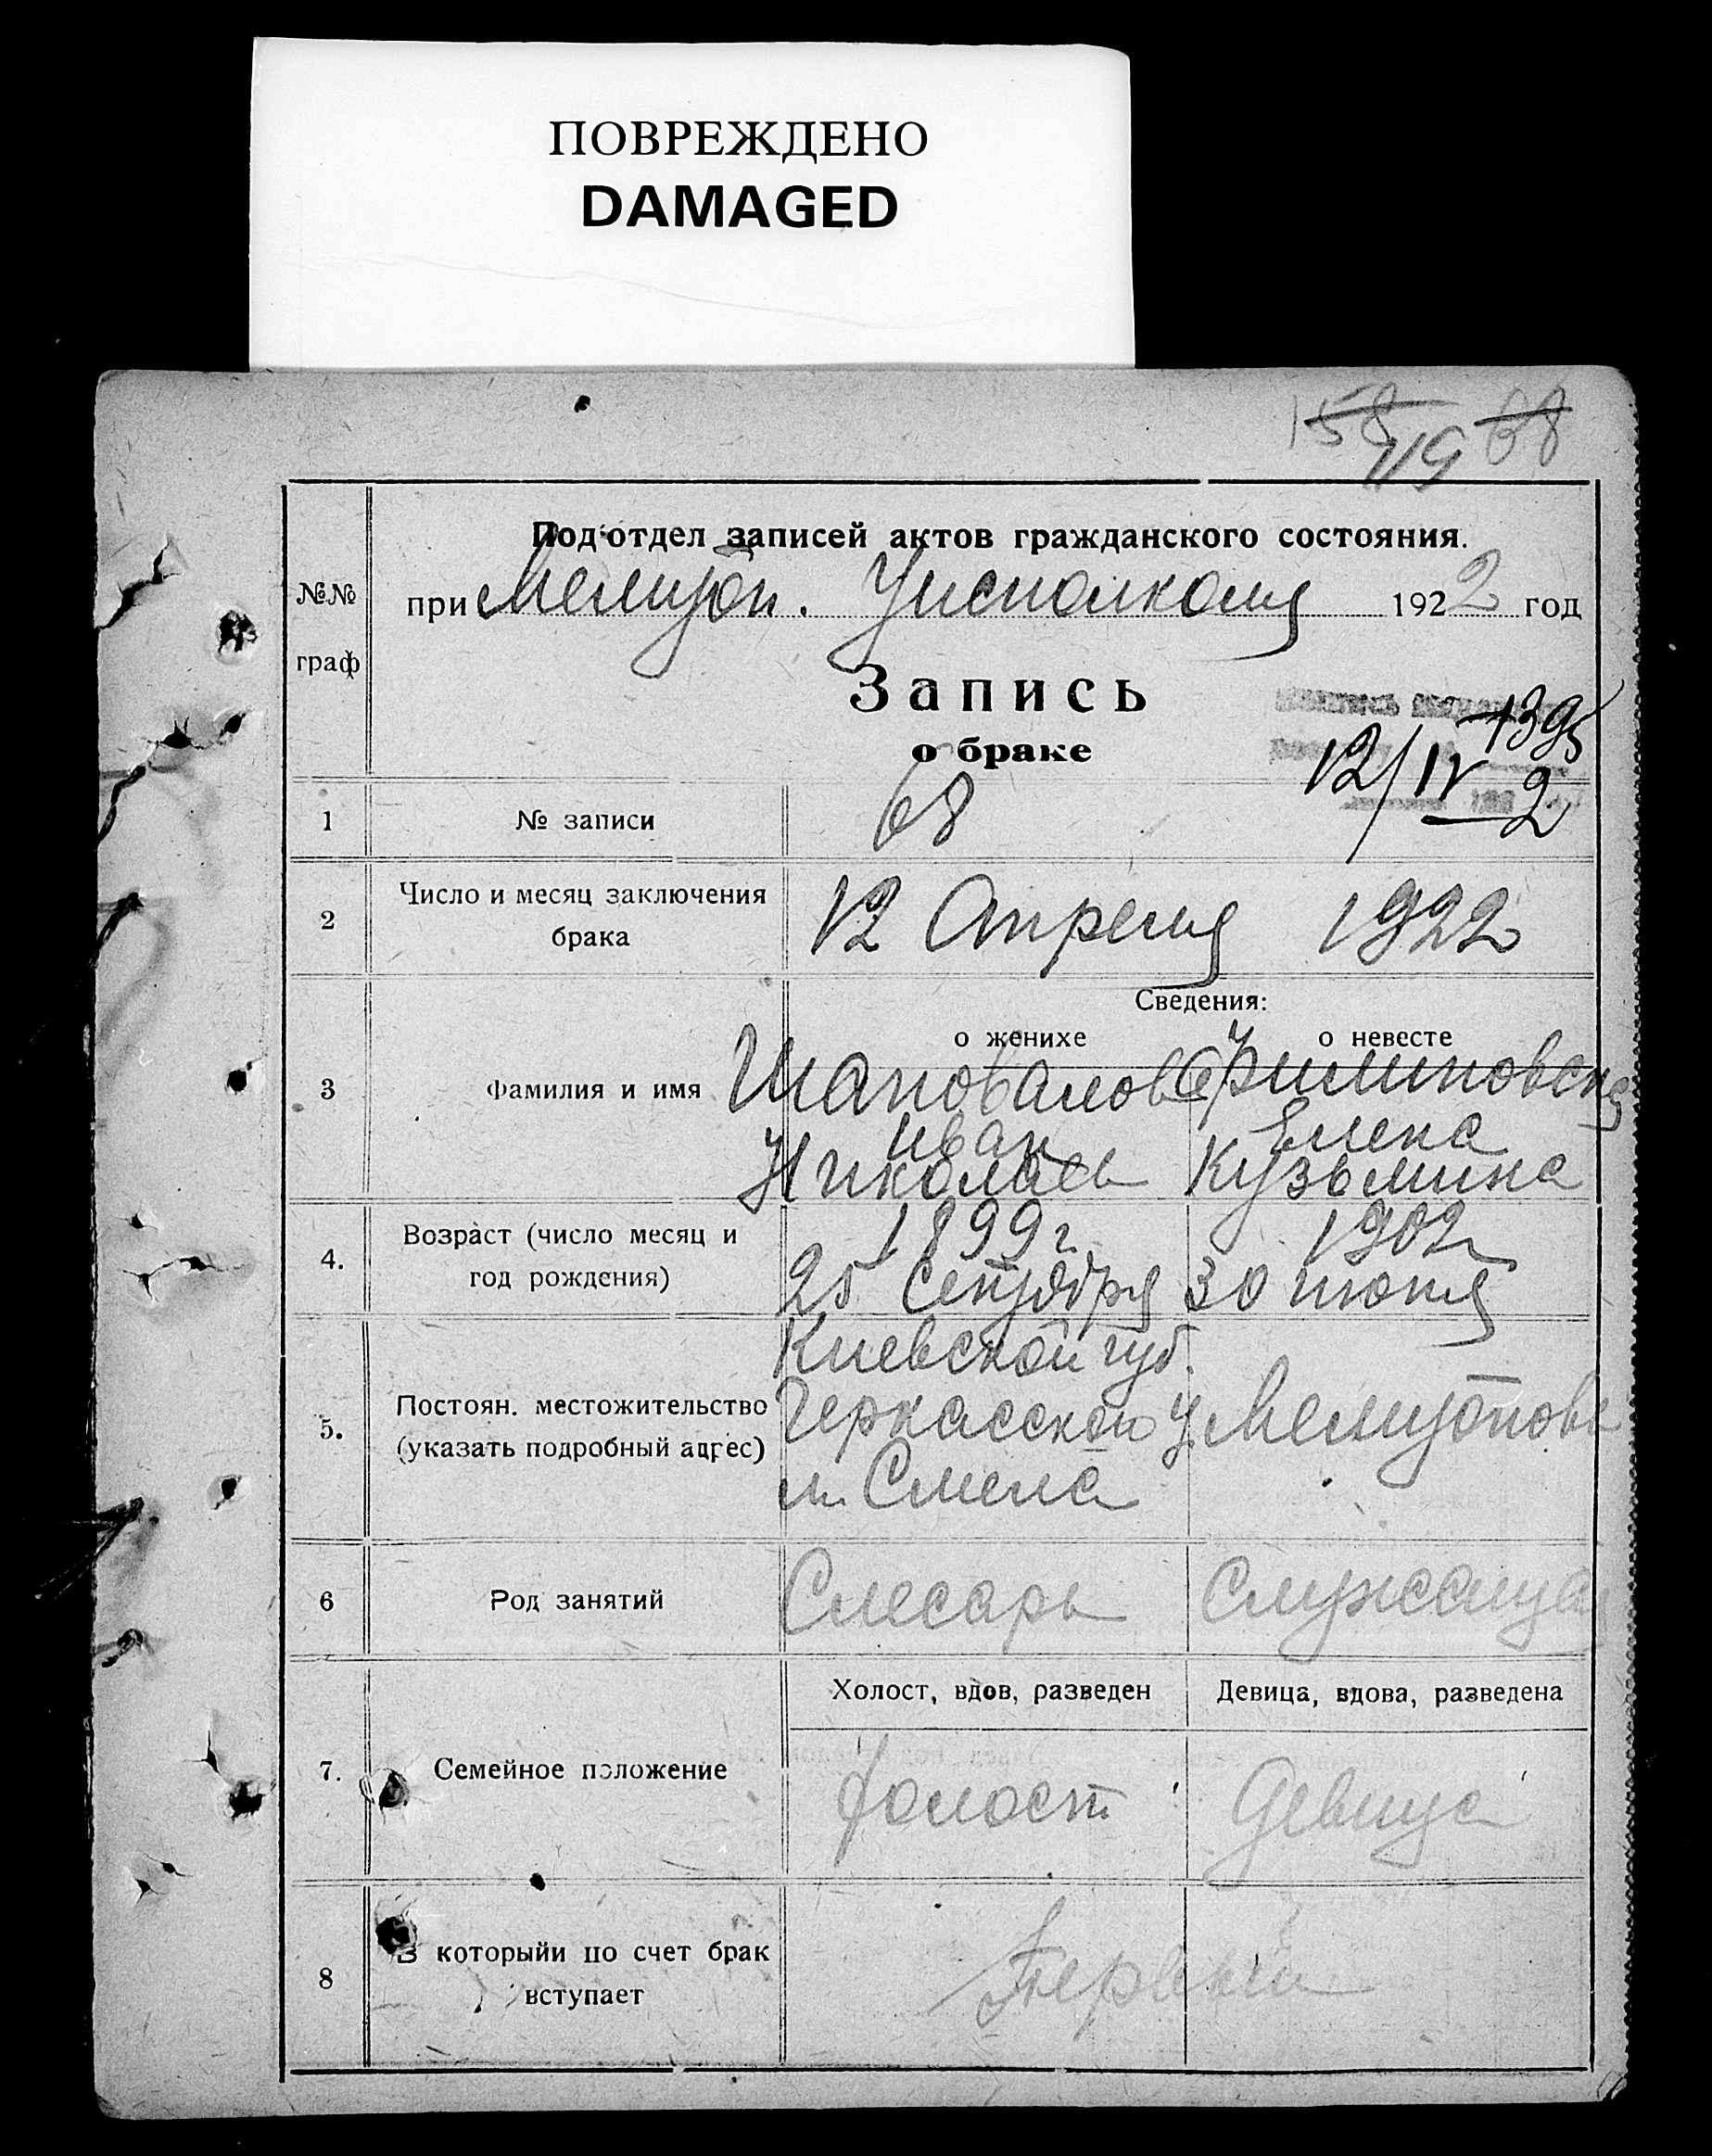 ПОВРЕЖДЕНО
DAMAGED
158 119 68
Под'отдел записей актов гражданского состояния.
№№ граф
при Мелитоп. Уисполкома 1922 год
Запись
о браке
1395
12/IV 2
1 № записи 68
2 Число и месяц заключения
брака
12 Апреля 1922
Сведения:
о женихе о невесте
3 Фамилия и имя
Шаповалов Филиповская
Иван Елена
Николаев Кузьмина
4. Возраст (число месяц и
год рождения)
1899 г 1902
25 Сентября 30 июня
5. Постоян. местожительство
(указать подробный адрес)
Киевской губ.
Черкасской у. Мелитополь
м. Смела
6 Род занятий Слесарь Служащая
Холост, вдов, разведен Девица, вдова, разведена
7. Семейное положение холост девица
8 В которыйи по счет брак
вступает
Первый